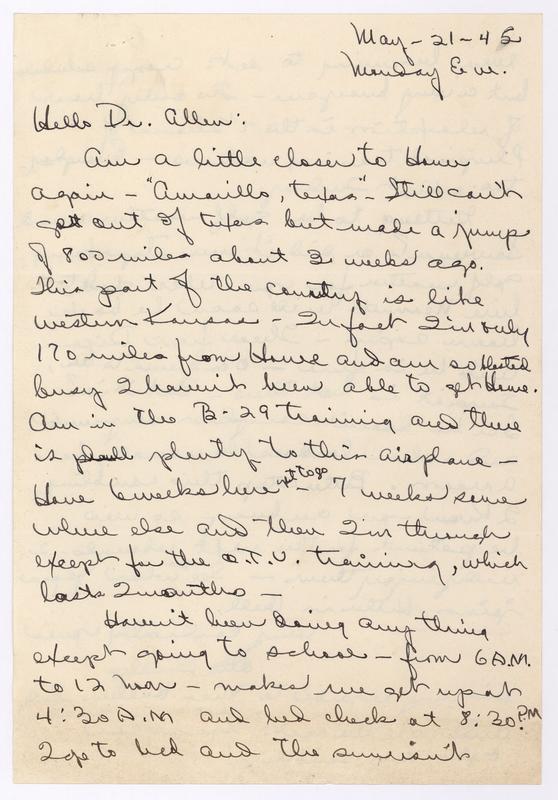 May-21-45
Monday Eve.
Hello Dr. Allen:
Am a little closer to Home
again - "Amarillo, Texas" - Still can't
get out of Texas but made a jump
of 800 miles about 3 weeks ago.
This part of the country is like
western Kansas - In fact I'm only
170 miles from Home and am so blasted
busy I haven't been able to get Home.
Am in the B-29 training and there
is plenty to this airplane -
Have 6 weeks here yet to go - 7 weeks some
where else and then I'm through
except for the O.T.U. training, which
lasts 2 months -
Haven't been doing any thing
except going to school - from 6 A.M.
to 12 Noon - makes me get up at
4:30 A.M and bed check at 8:30 P.M
I go to bed and the sun isn't